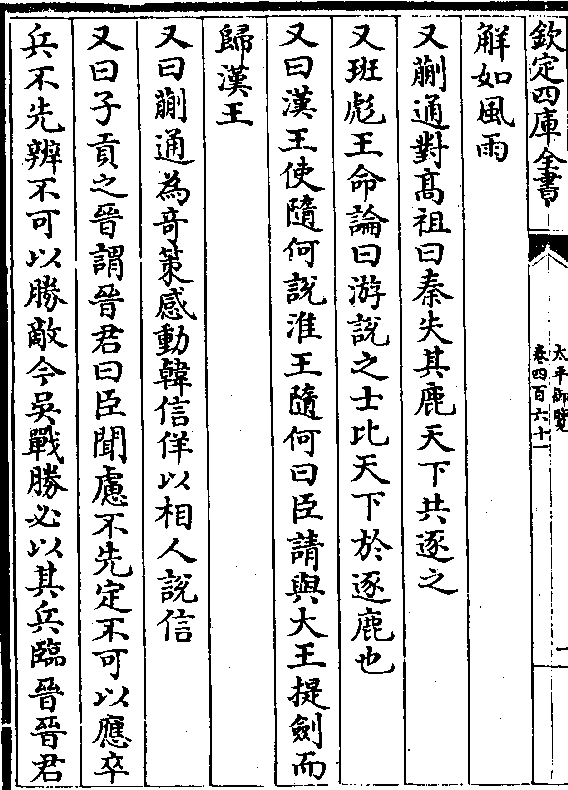 欽定四庫全書
太平御覽
卷四百六十一
一
解如風雨
又蒯通對髙祖曰秦失其鹿天下共逐之
又班彪王命論曰游說之士比天下於逐鹿也
又曰漢王使隨何說淮王隨何曰臣請與大王提劍而
歸漢王
又曰蒯通為奇策感動韓信佯以相人說信
又曰子貢之晉謂晉君曰臣聞慮不先定不可以應卒
兵不先辨不可以勝敵今吳戰勝必以其兵臨晉晉君